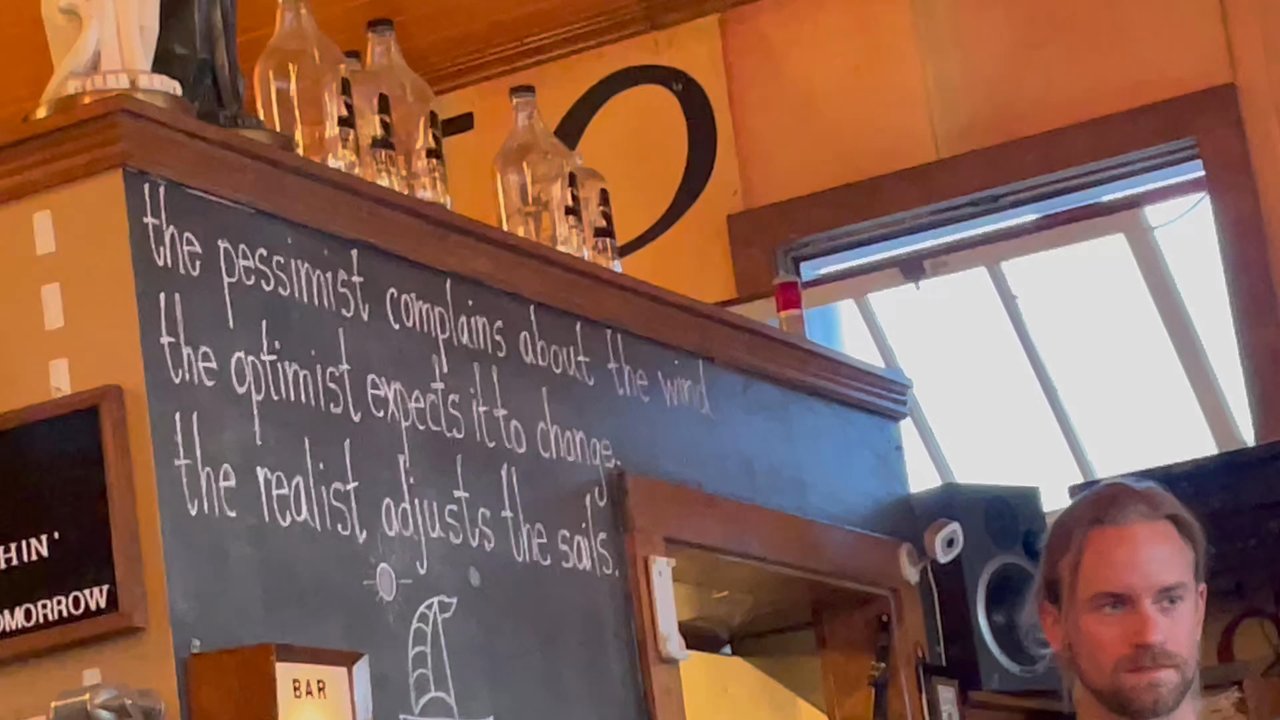 the pessimist complains about the wind
the optimist expects it to change.
the realist adjusts the sails.
HIN'
OMORROW
BAR